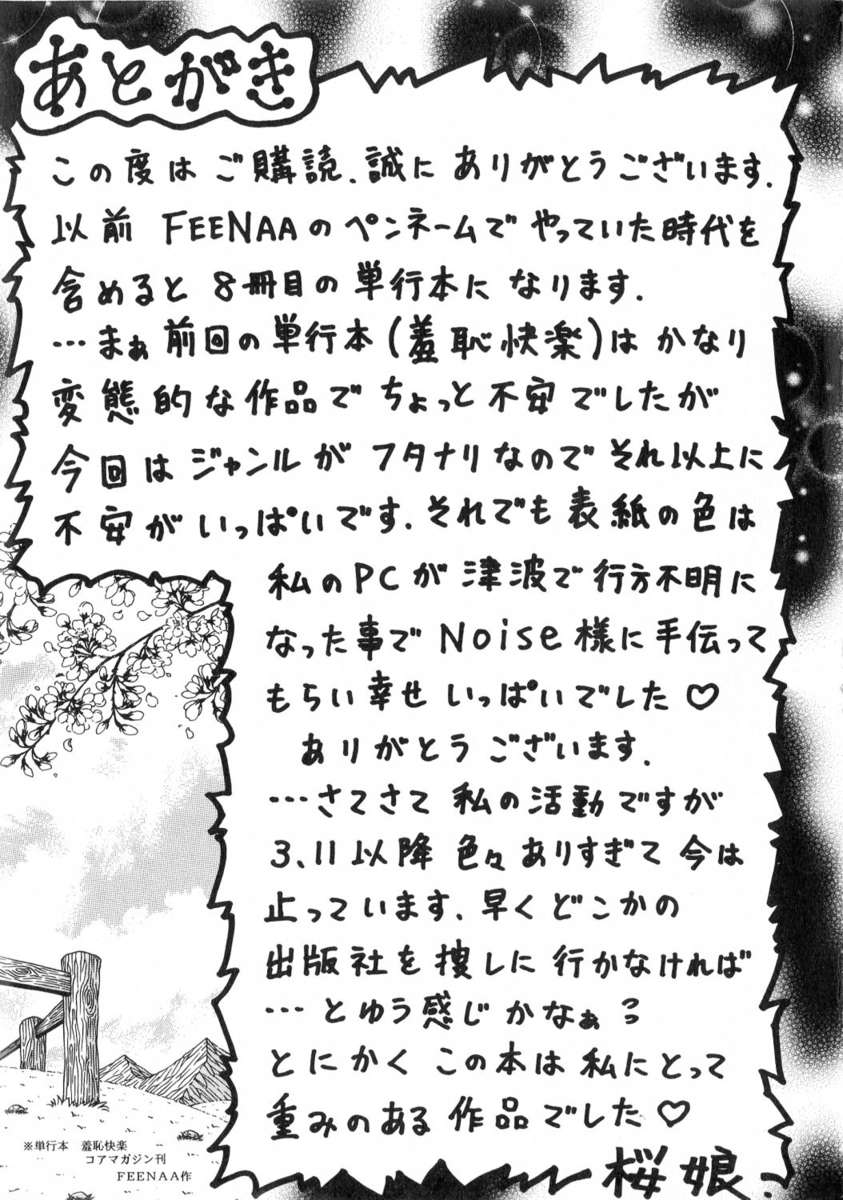 あとがき
この度はご購読、誠にありがとうございます。
以前 FEENAAのペンネームでやっていた時代を
含めると 8冊目の単行本になります。
…まぁ前回の単行本(羞恥快楽)はかなり
変態的な作品でちょっと不安でしたが
今回はジャンルがフタナリなのでそれ以上に
不安がいっぱいです。それでも表紙の色は
私のPCが津波で行方不明に
なった事でNoise様に手伝って
もらい幸せいっぱいでした♡
ありがとうございます。
…さてさて私の活動ですが
3.11以降色々ありすぎて今は
止っています。早くどこかの
出版社を捜しに行かなければ
…とゆう感じかなぁ
とにかくこの本は私にとって
重みのある作品でした♡
桜娘
※単行本 羞恥快楽
コアマガジン刊
FEENAA作